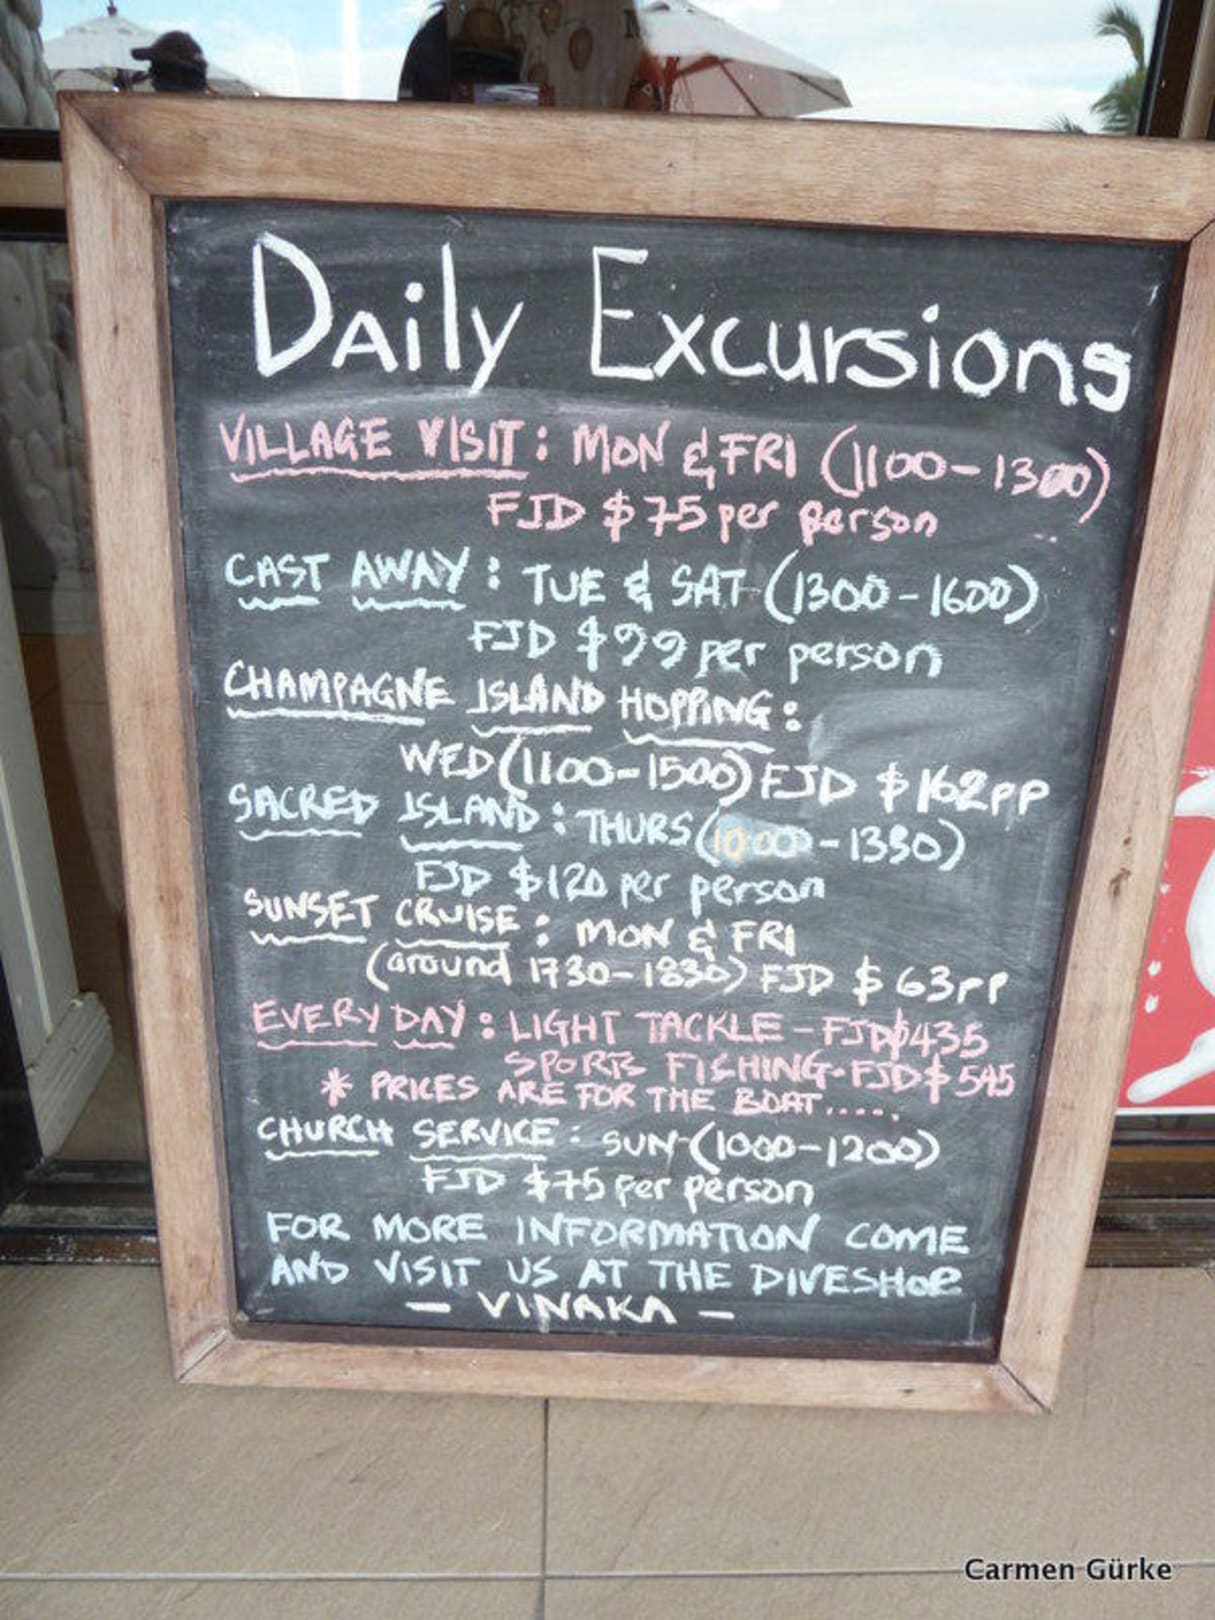 Daily Excursions
VILLAGE VISIT: MON & FRI (1100-1300)
FJD $75 per person
CAST AWAY: TUE & SAT (1300-1600)
FJD $99 per person
CHAMPAGNE ISLAND HOPPING:
WED (1100-1500) FJD $162pp
SACRED ISLAND: THURS (10:00-1330)
FJD $120 per person
SUNSET CRUISE: MON & FRI
(around 1730-1830) FJD $63pp
EVERY DAY: LIGHT TACKLE - FJD$435
SPORTS FISHING-FJD$545
* PRICES ARE FOR THE BOAT.....
CHURCH SERVICE: SUN-(1000-1200)
FJD $75 per person
FOR MORE INFORMATION COME
AND VISIT US AT THE DIVESHOP
- VINAKA -
Carmen Gürke